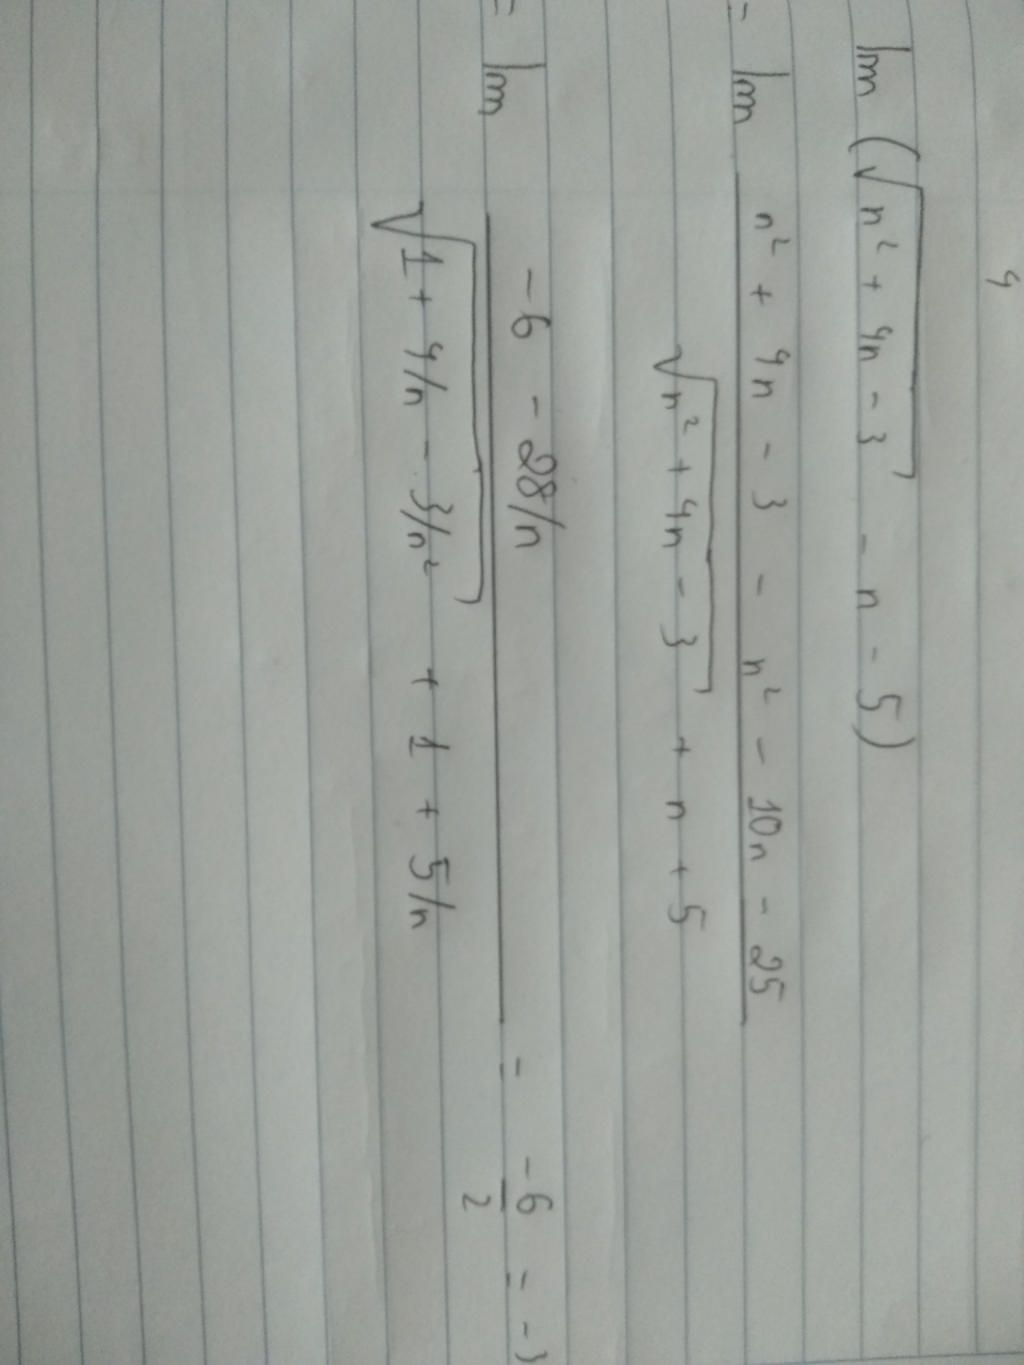 4
lim (√(n² + 4n - 3) - n - 5)
= lim (n² + 4n - 3 - n² - 10n - 25) / (√(n² + 4n - 3) + n + 5)
= lim (-6 - 28/n) / (√(1 + 4/n - 3/n²) + 1 + 5/n) = -6/2 = -3